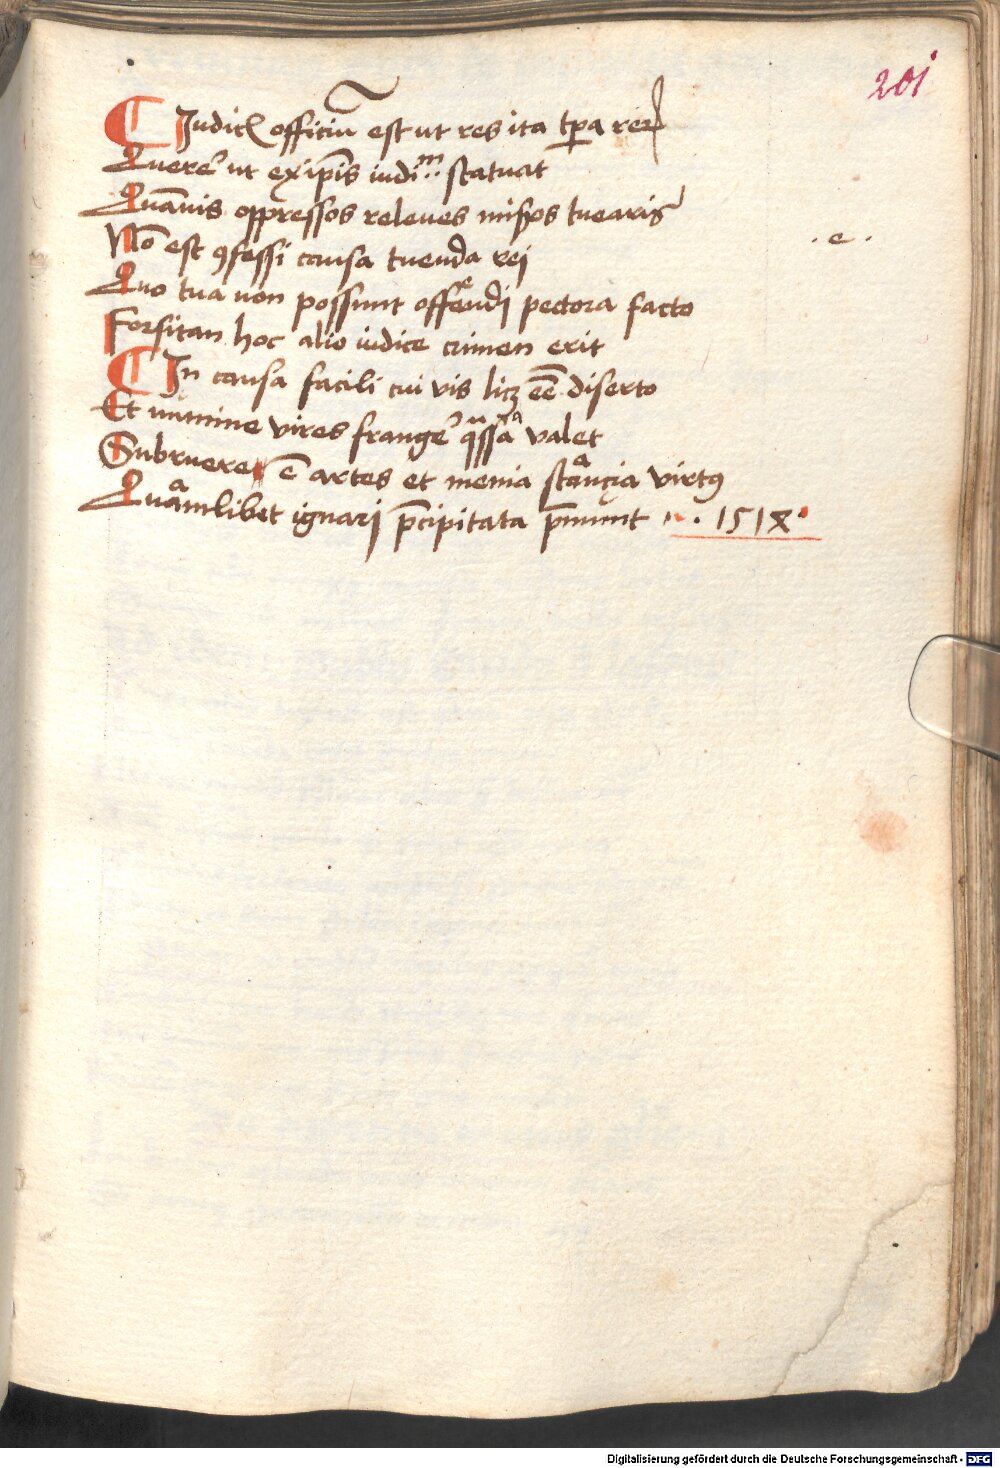 201
Judicꝭ officiū est ut res ita tꝑa reꝝ
Querē ut ex ip̄is iudiᵐ statuat
Quāuis oppressos releues misᵉros tuearis
Nō est ꝯfessi causa tuenda rej
.e.
Quo tua non possunt offendj pectora facto
Forsitan hoc alio iudice crimen erit
In causa facili cui vis licꝫ eē diserto
Et minime vires frangeʳ qᵘssᵃa valet
Subruere ē artes et menia stancia virtꝰ
Quamlibet ignarj p̄cipitata p̄munt . 1518
Digitalisierung gefördert durch die Deutsche Forschungsgemeinschaft - DFG